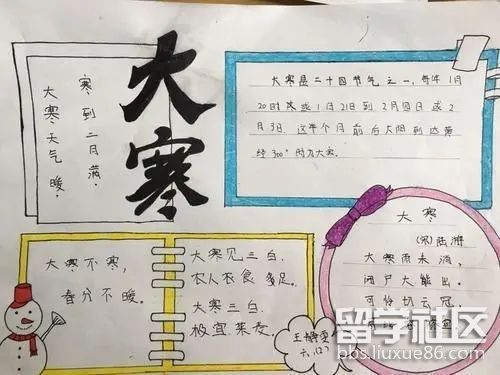 大寒
寒到二月满.
大寒天气暖.
大寒是二十四节气之一,每年1月
20日或1月21日到2月四日或2
月3日 这半个月前后太阳到达黄
经300°时为大寒.
大寒不寒,
春分不暖.
大寒见三白.
农人衣食足.
大寒三白.
极宜菜麦
大寒
(宋)陆游
大寒雪未消,
闭户
可怜切云冠,
六.
留学社区
bbs.liuxue86.com